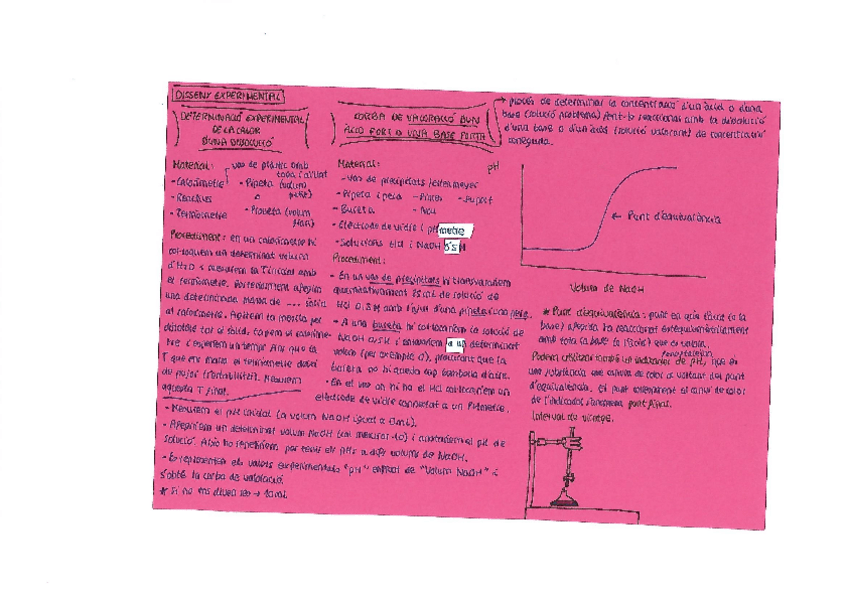 DISSENY EXPERIMENTAL
DETERMINACIÓ EXPERIMENTAL
DE LA CALOR
D'UNA DISSOLUCIÓ
Material: vas de plàstic amb
tapa i aïllat
- Calorímetre - Pipeta (volum
- Reactius
- Termòmetre - Proveta (volum
Procediment: en un calorímetre hi
col·loquem un determinat volum
d'H2O i mesurem la T inicial amb
el termòmetre. Posteriorment afegim
una determinada massa de ... sòlid
al calorímetre. Agitem la mescla per
dissoldre tot el sòlid. Tapem el caloríme-
tre i esperem un temps fins que la
T que ens marca el termòmetre deixi
de pujar (
aquesta T final.
CORBA DE VALORACIÓ D'UN
ÀCID FORT O UNA BASE FORTA
Material:
- Vas de precipitats / erlenmeyer
- Pipeta i pera - Pinces - Suport
- Bureta - Nou
- Elèctrode de vidre i pHmetre
- Solucions HCl i NaOH 0'5 M
Procediment:
- En un vas de precipitats hi transvasem
quantitativament 25 mL de solució de
HCl 0,5 M amb l'ajut d'una pipeta i una pera.
- A una bureta hi col·loquem la solució de
NaOH 0,5 M i enrasem a un determinat
volum (per exemple 0), procurant que la
bureta no hi quedi cap bombolla d'aire.
- En el vas on hi ha el HCl col·loquem un
elèctrode de vidre connectat a un pHmetre.
- Mesurem el pH inicial (a volum NaOH igual a 0 mL).
- Afegirem un determinat volum NaOH i anotarem el pH de
solució. Això ho repetirem per tenir els pHs a difs volums de NaOH.
- Es representen els valors experimentals "pH" enfront de "Volum NaOH" i
s'obté la corba de valoració.
* Si no ens diuen res → 10 mL
→ procés de determinar la concentració d'un àcid o d'una
base (solució problema) fent-lo reaccionar amb la dissolució
d'una base o d'un àcid (solució valorant) de concentració
coneguda.
pH
← Punt d'equivalència
Volum de NaOH
* Punt d'equivalència: punt en què l'àcid (o la
base) afegida ha reaccionat estequiomètricament
amb tota la base (o l'àcid) que es valora.
fenolftaleïna
Podem utilitzar també un indicador de pH, que és
una substància que canvia de color al voltant del punt
d'equivalència. El punt corresponent al canvi de color
de l'indicador s'anomena punt final.
Interval de viratge.